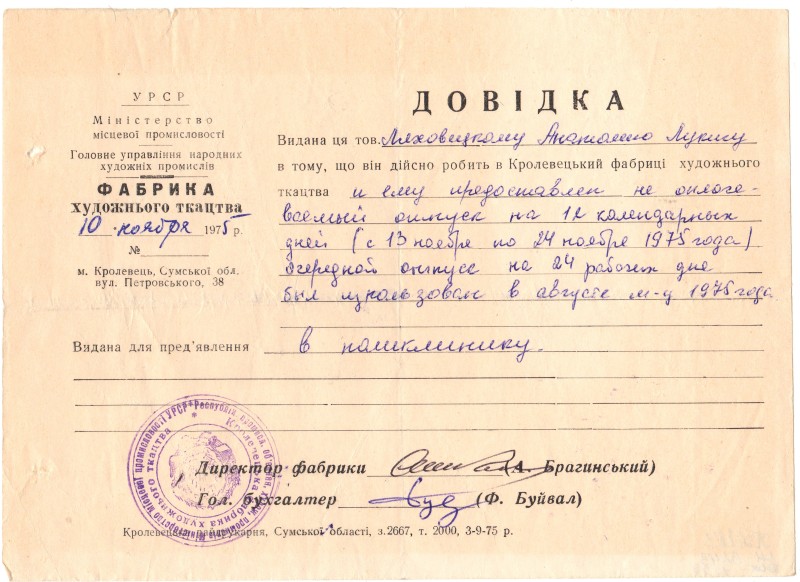 УРСР
Міністерство
місцевої промисловості
Головне управління народних
художніх промислів
ФАБРИКА
художнього ткацтва
10 ноября 1975 р.
№
м. Кролевець, Сумської обл.
вул. Петровського, 38
ДОВІДКА
Видана ця тов. Ляховицкому Анатолию Лукичу
в тому, що він дійсно робить в Кролевецький фабриці художнього
ткацтва и ему предоставлен не оплоче-
ваемый отпуск на 12 календарных
дней (с 13 ноября по 24 ноября 1975 года)
Очередной отпуск на 24 рабочих дне
был использован в августе м-це 1975 года
Видана для пред'явлення в поликлинику.
Директор фабрики (А. Брагинський)
Гол. бухгалтер (Ф. Буйвал)
Кролевецька райдрукарня, Сумської області, з.2667, т. 2000, 3-9-75 р.
Міністерство місцевої промисловості УРСР
Кролевецька фабрика художнього ткацтва